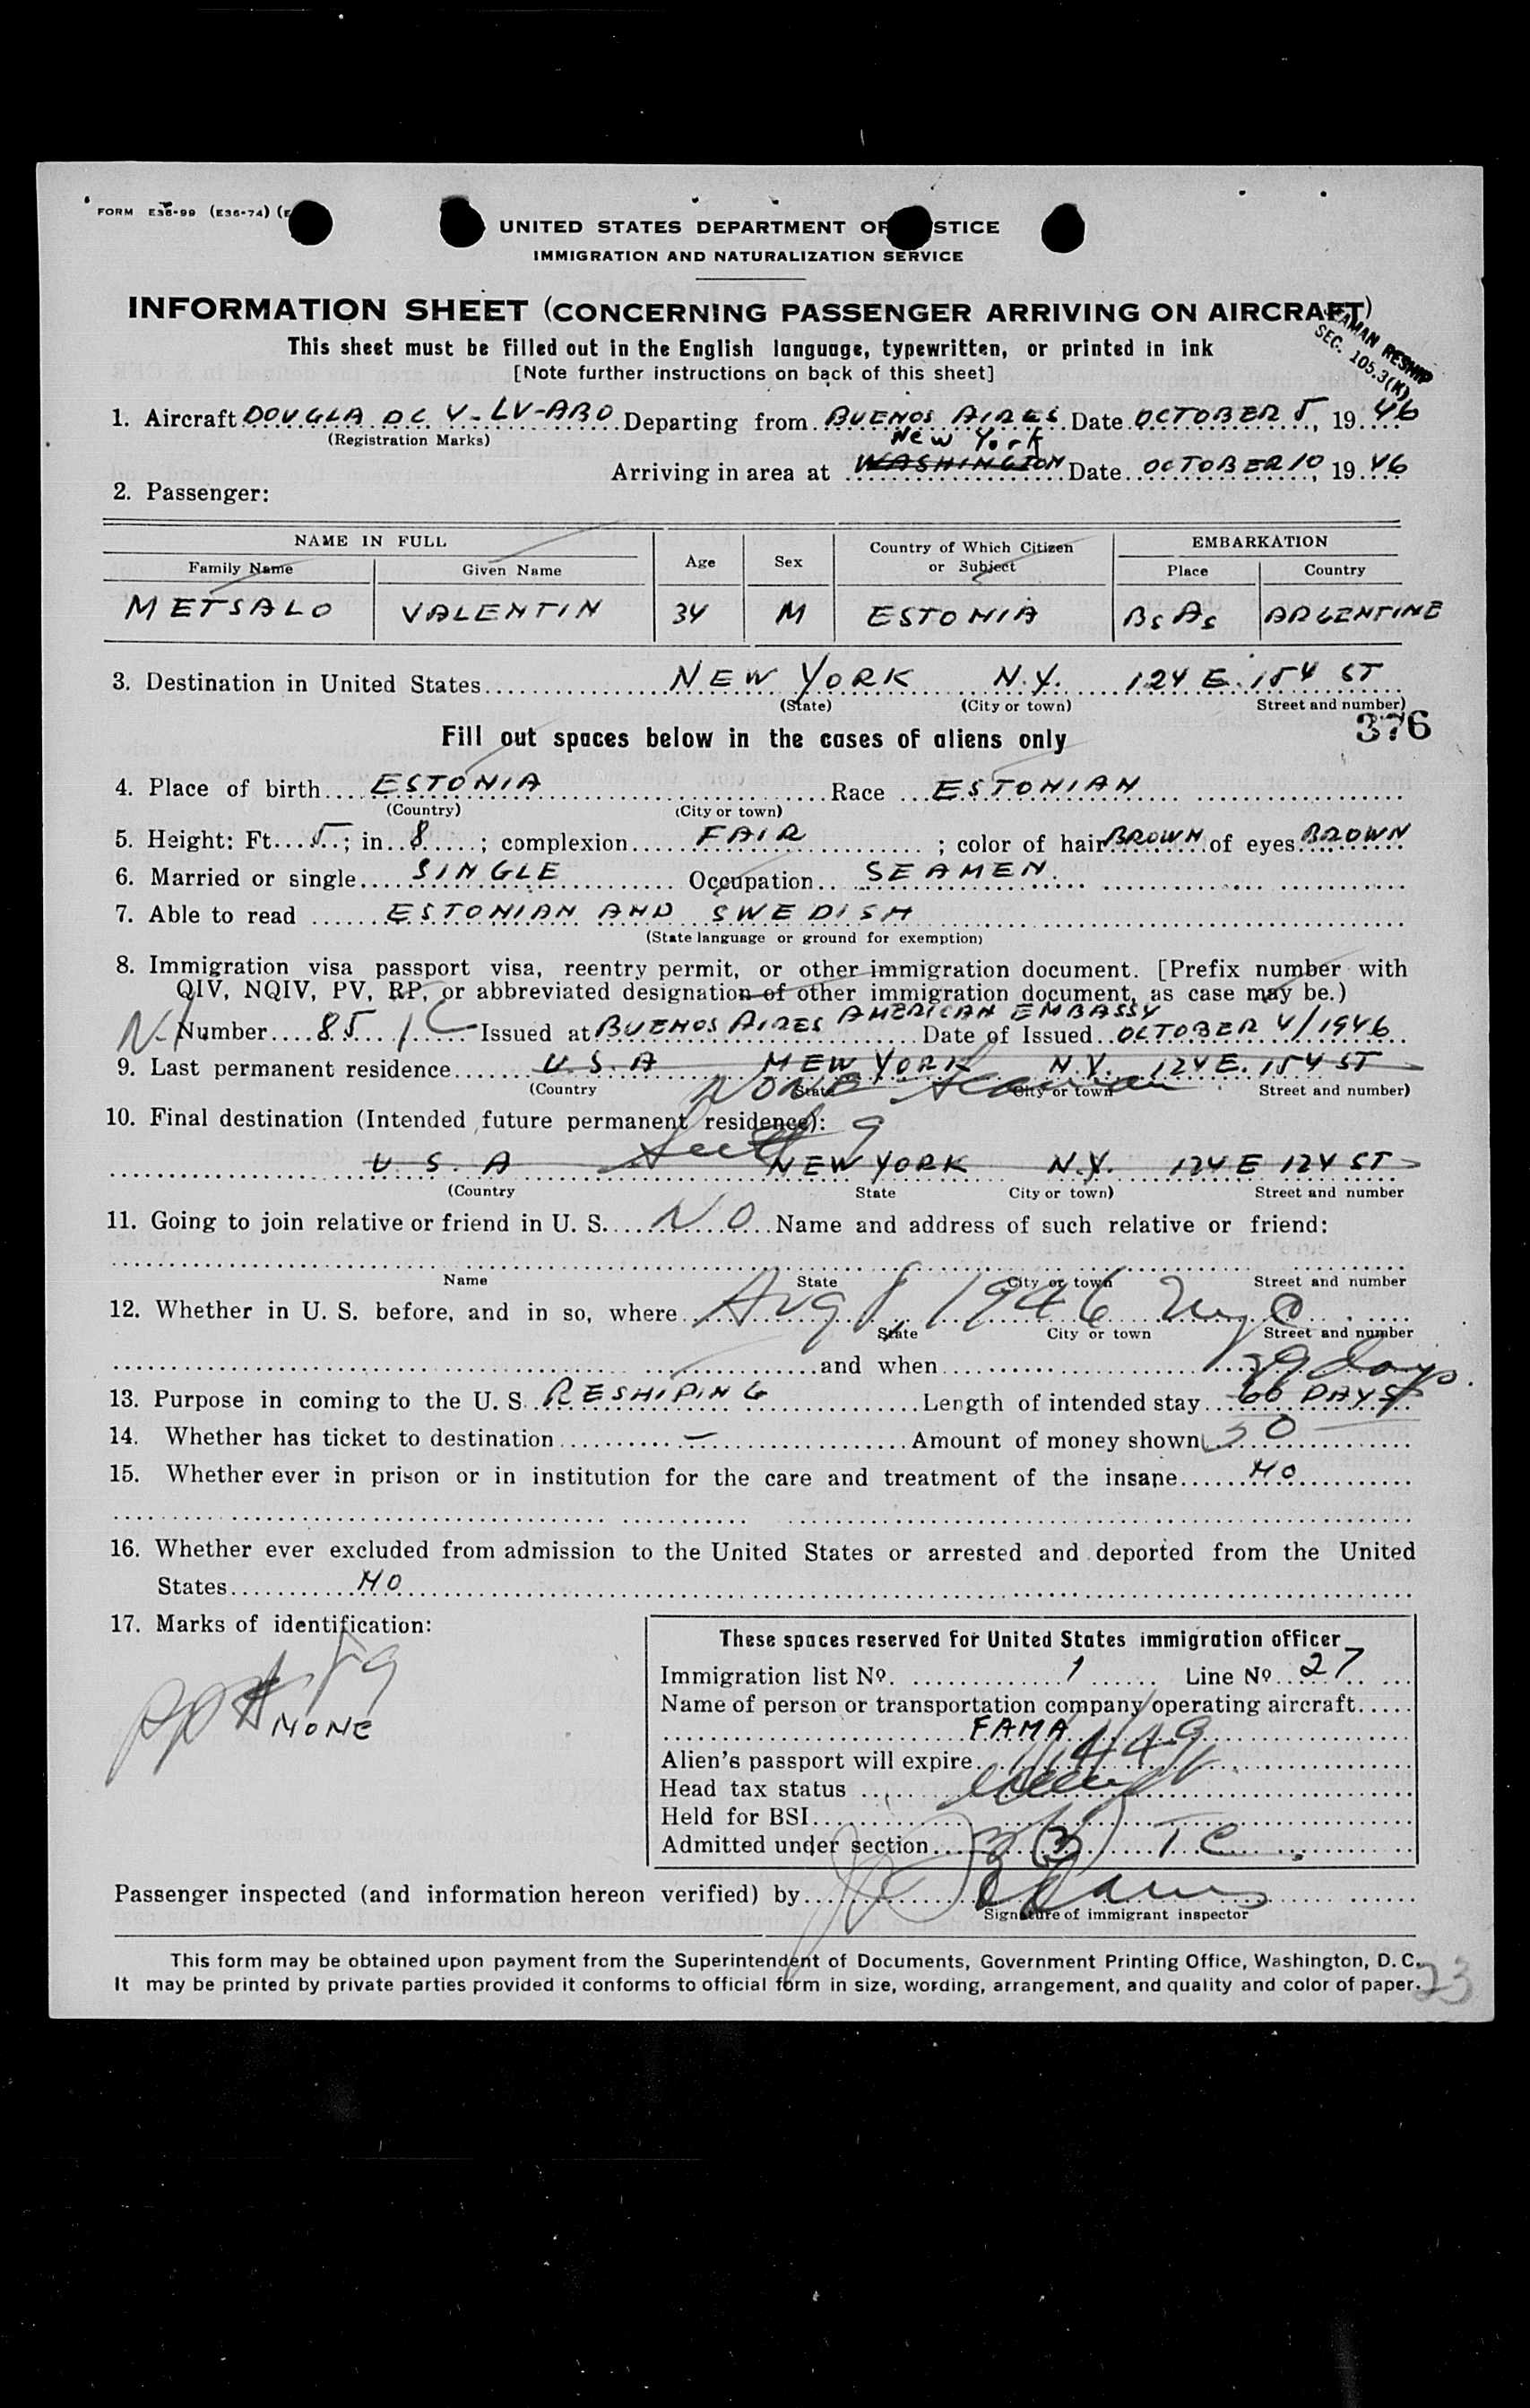 FORM E36-99 (E36-74) (E
UNITED STATES DEPARTMENT OF STICE
IMMIGRATION AND NATURALIZATION SERVICE
INFORMATION SHEET (CONCERNING PASSENGER ARRIVING ON AIRCRAFT)
SEAMAN RESHIP
SEC. 105.3(K)
This sheet must be filled out in the English language, typewritten, or printed in ink
[Note further instructions on back of this sheet]
1. Aircraft DOUGLA DC 4 - LV-ABO Departing from BUENOS AIRES Date OCTOBER 5, 1946
(Registration Marks)
New York
Arriving in area at WASHINGTON Date OCTOBER 10, 1946
2. Passenger:
NAME IN FULL Age Sex Country of Which Citizen or Subject EMBARKATION
Family Name Given Name Place Country
METSALO VALENTIN 34 M ESTONIA Bs As ARGENTINE
3. Destination in United States NEW YORK N.Y. 124 E. 154 ST
(State) (City or town) Street and number)
376
Fill out spaces below in the cases of aliens only
4. Place of birth ESTONIA Race ESTONIAN
(Country) (City or town)
5. Height: Ft. 5; in 8; complexion FAIR; color of hair BROWN of eyes BROWN
6. Married or single SINGLE Occupation SEAMEN.
7. Able to read ESTONIAN AND SWEDISH
(State language or ground for exemption)
8. Immigration visa passport visa, reentry permit, or other immigration document. [Prefix number with
QIV, NQIV, PV, RP, or abbreviated designation of other immigration document, as case may be.)
Number 85 Issued at BUENOS AIRES AMERICAN EMBASSY Date of Issued OCTOBER 4/1946
9. Last permanent residence U.S.A NEW YORK N.Y. 124 E. 154 ST
(Country State City or town Street and number)
NONE Seaman
10. Final destination (Intended future permanent residence):
U.S.A NEW YORK N.Y. 124 E 124 ST
(Country State City or town) Street and number
11. Going to join relative or friend in U. S. NO Name and address of such relative or friend:
Name State City or town Street and number
12. Whether in U. S. before, and in so, where Aug 8, 1946 NYC
State City or town Street and number
and when
29 days.
13. Purpose in coming to the U. S. RESHIPING Length of intended stay 60 DAYS
14. Whether has ticket to destination — Amount of money shown 50
15. Whether ever in prison or in institution for the care and treatment of the insane NO
16. Whether ever excluded from admission to the United States or arrested and deported from the United
States NO
17. Marks of identification:
NONE
These spaces reserved for United States immigration officer
Immigration list No. 1 Line No. 27
Name of person or transportation company operating aircraft
FAMA
Alien's passport will expire
Head tax status
Held for BSI
Admitted under section 3(3) T C.
Passenger inspected (and information hereon verified) by
Signature of immigrant inspector
This form may be obtained upon payment from the Superintendent of Documents, Government Printing Office, Washington, D. C.
It may be printed by private parties provided it conforms to official form in size, wording, arrangement, and quality and color of paper.
23